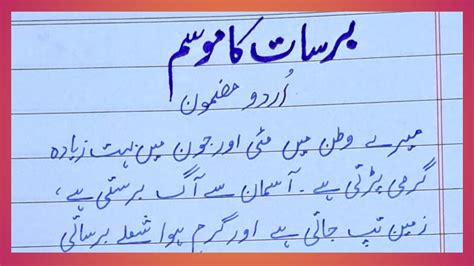 برسات کا موسم
اُردو مضمون
میرے وطن میں مئی اور جون میں بہت زیادہ
گرمی پڑتی ہے۔ آسمان سے آگ برستی ہے،
زمین تپ جاتی ہے اور گرم ہوا شعلے برساتی